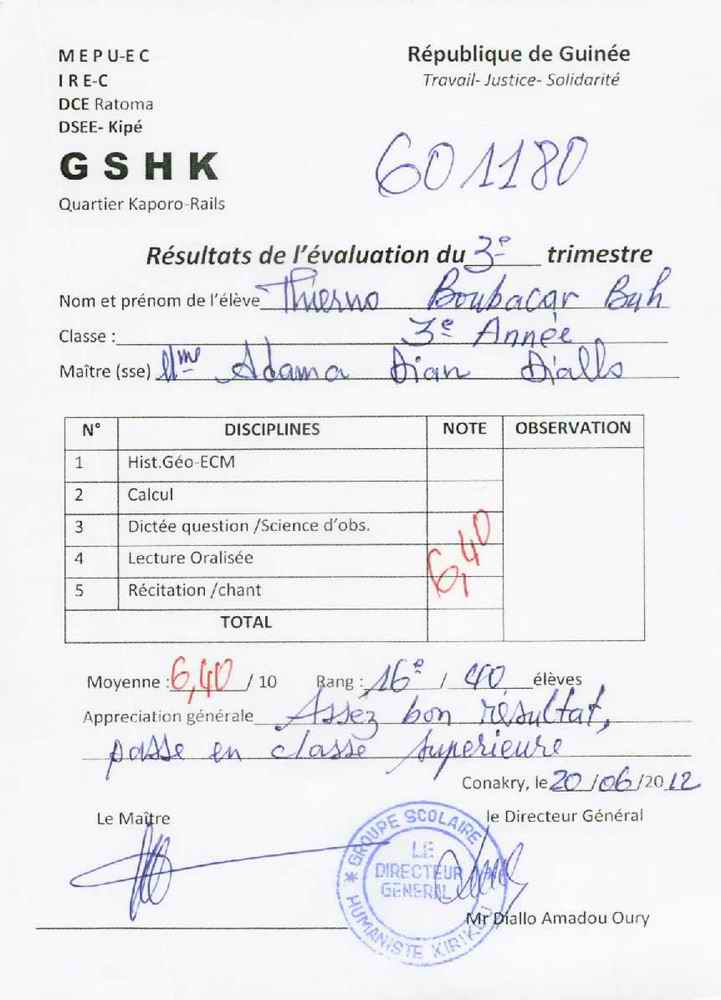 MEPU-EC
IRE-C
DCE Ratoma
DSEE- Kipé
GSHK
Quartier Kaporo-Rails
République de Guinée
Travail- Justice- Solidarité
601180
Résultats de l'évaluation du 3e trimestre
Nom et prénom de l'élève Thierno Boubacar Bah
Classe : 3e Année
Maître (sse) Mme Adama Dian Diallo
N° DISCIPLINES NOTE OBSERVATION
1 Hist.Géo-ECM
2 Calcul
3 Dictée question /Science d'obs.
4 Lecture Oralisée
5 Récitation /chant
6,40
TOTAL
Moyenne : 6,40 / 10 Rang : 16e / 40 élèves
Appreciation générale Assez bon résultat,
passe en classe superieure
Conakry, le 20/06/2012
Le Maître
le Directeur Général
GROUPE SCOLAIRE
LE
DIRECTEUR
GENERAL
HUMANISTE KIRIKOU
Mr Diallo Amadou Oury